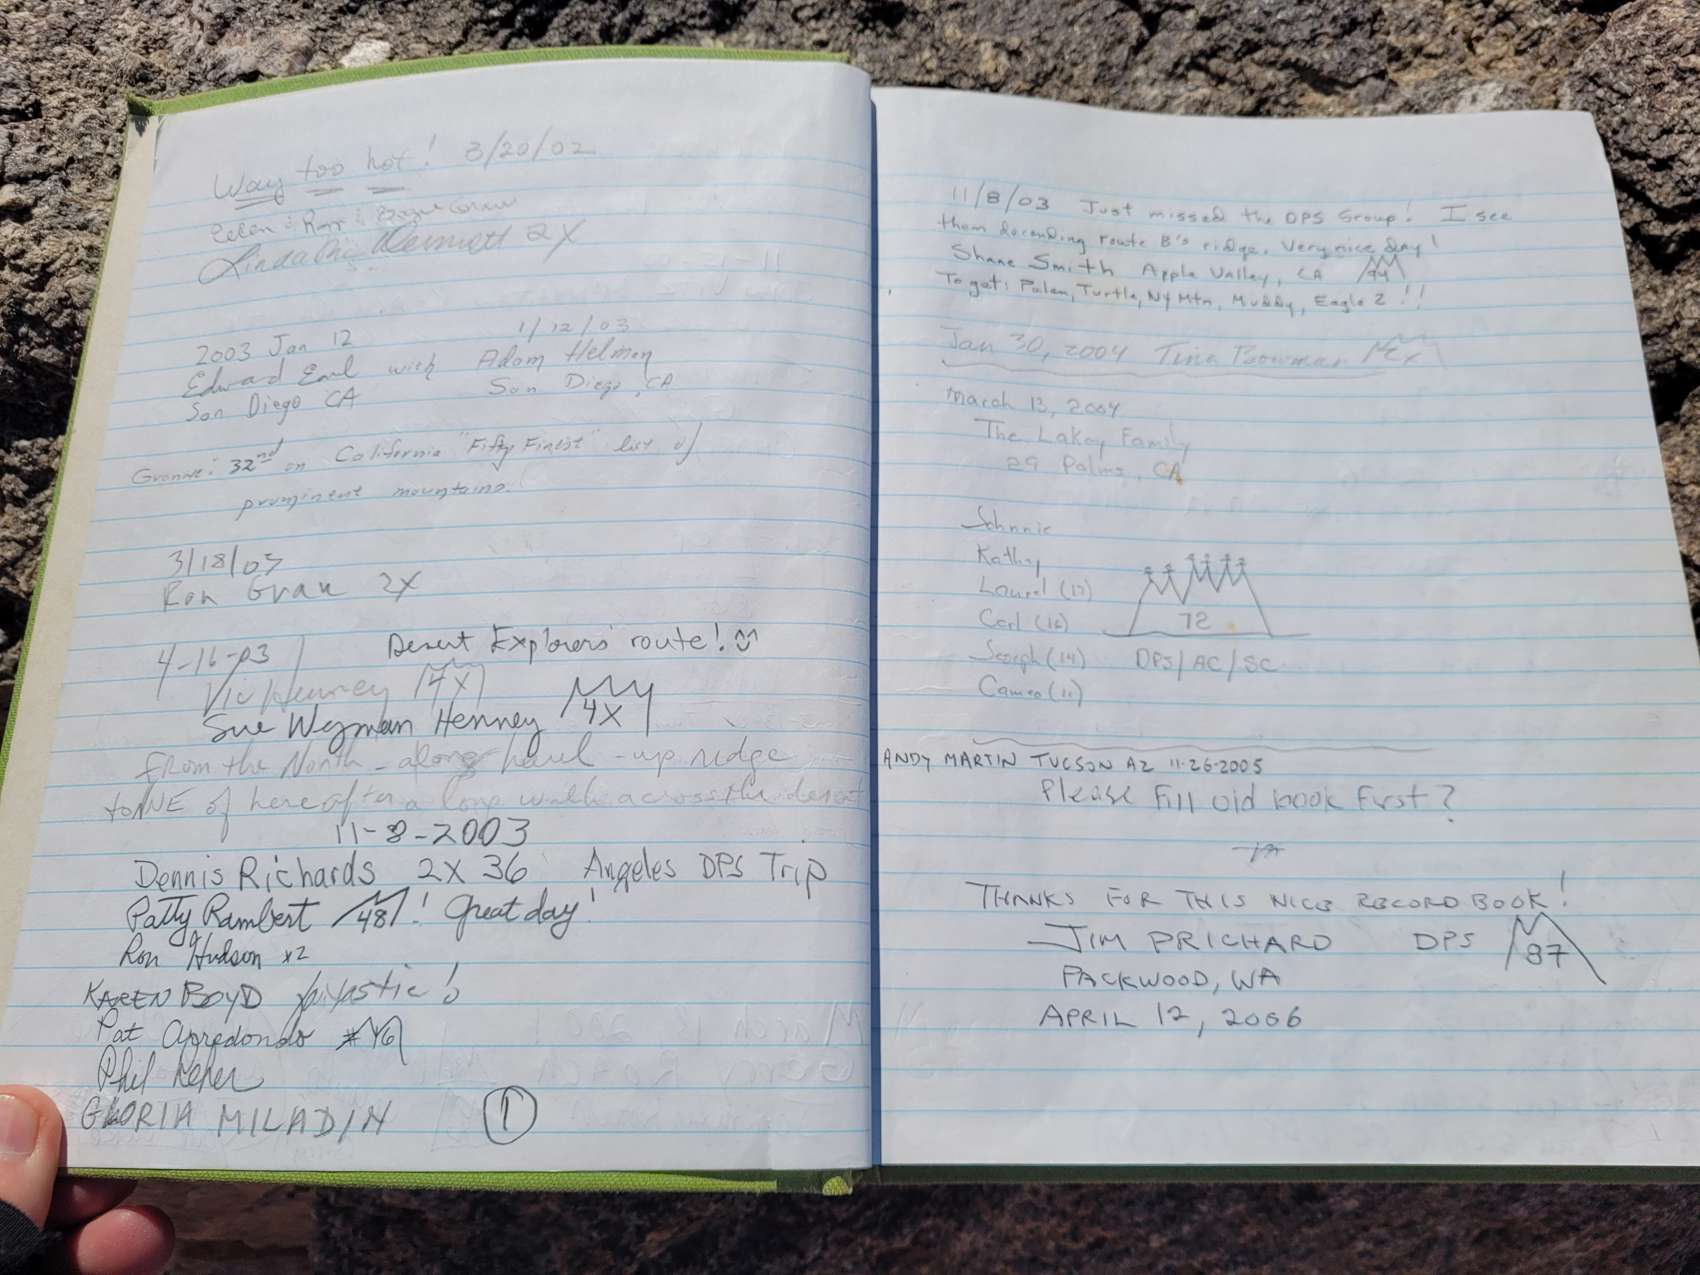 Way too hot! 3/20/02
2X
2003 Jan 12 1/12/03
Edward Earl with Adam Helman
San Diego CA San Diego, CA
32nd on California "Fifty Finest" list of
prominent mountains.
3/18/03
Ron Grau 2X
4-16-03 Desert Explorers' route!
Vic Henney 4X
Sue Wyman Henney 4X
from the North - along haul-up ridge
to NE of here after a long walk across the desert
11-8-2003
Dennis Richards 2X 36 Angeles DPS Trip
Patty Rambert 48! Great day!
Ron Hudson x2
KAREN BOYD fantastic!
Pat Arredondo #46
Phil Reher
GLORIA MILADIN 1
11/8/03 Just missed the DPS Group! I see
them decending route B's ridge. Very nice day!
Shane Smith Apple Valley, CA 94
To got: Palen, Turtle, NY Mtn, Muddy, Eagle 2!!
Jan 30, 2004 Tina Bowman
March 13, 2004
The Lakey Family
29 Palms, CA
Johnnie
Kathy
Laurel (17)
Carl (16) 72
Joseph (14) DPS/AC/SC
Cameo (11)
ANDY MARTIN TUCSON AZ 11-26-2005
Please Fill old book First?
THANKS FOR THIS NICE RECORD BOOK!
JIM PRICHARD DPS 87
PACKWOOD, WA
APRIL 12, 2006